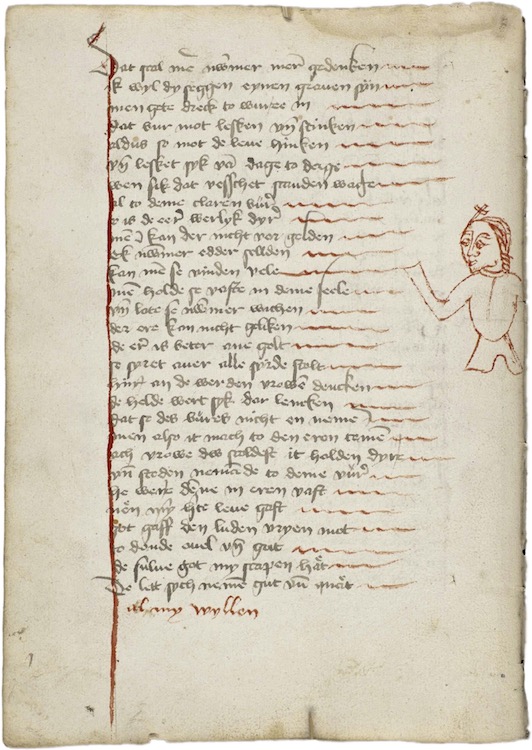 Dat scal me nummer mer gedenken
Ik wyl dy seggen eynen grauen syn
men gete dreck to wure in
dat vur mot lesken vn stinken
aldus so mot de leue hinken
vn lesket syk van dage to dage
wen sik dat vesschet scanden wage
al to deme claren vur
er is de eer werlyk dyr
men kan der nicht vor gelden
ek nummer edder selden
kan me se vinden vele
men holde se vaste in deme sele
vn lote se nummer wichen
der ere kan nicht geliken
de er is beter ane golt
se syret auer alle syrde stolt
hir an de werden vrowen dencken
de helde wert syk dar lencken
dat se des nicht en neme
men also it mach to den eren temen
ach vrowe du scoldest it holden dyre
vn stoden to deme vur
he were denne in eren vast
leue gast
got gaff den luden vryen mot
to donde ouel vn gut
de sulue got my scapen hat
De let sych nemen gut vn quat
al my wyllen